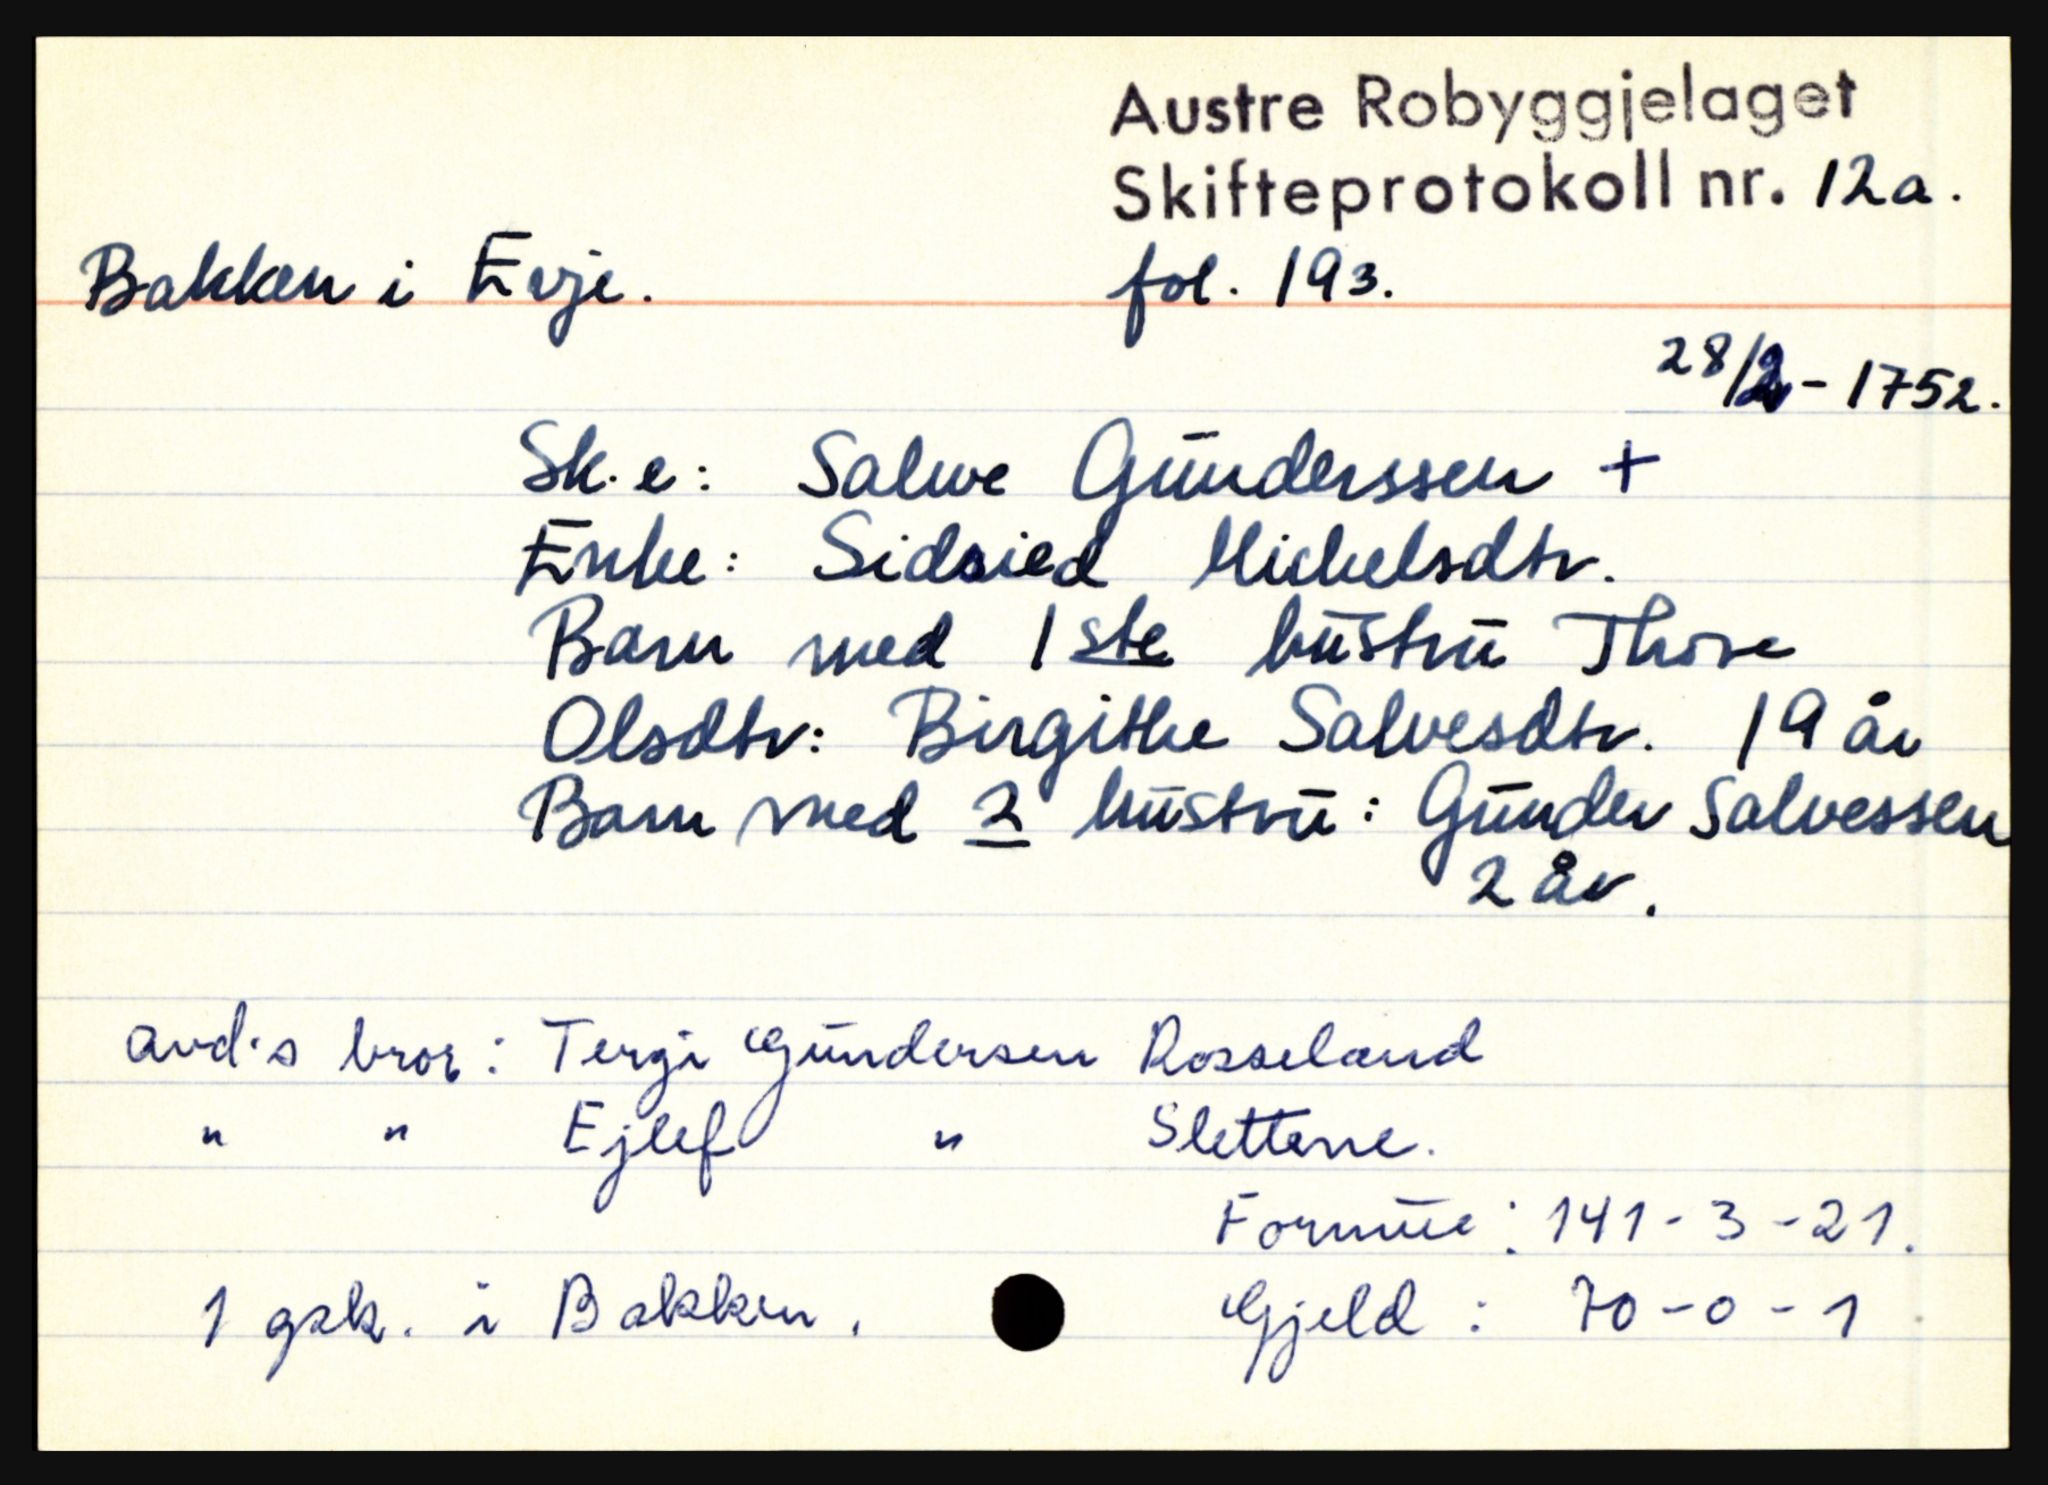 Austre Robyggjelaget
Skifteprotokoll nr. 12a.
Bakken i Evje. fol. 193.
28/2 - 1752.
Sk. e: Salwe Gūnderssen +
Enke: Sidsied Michelsdtr.
Barn med 1ste hūstrū Thore
Olsdtr: Birgithe Salvesdtr. 19 år
Barn med 2 hūstrū: Gūnder Salvessen
2 år.
avd.s bror: Tergi Gūndersen Rosseland
" " Ejlef " Slettene.
Formūe: 141 - 3 - 21.
1 gsk. i Bakken. Gjeld: 70 - 0 - 1